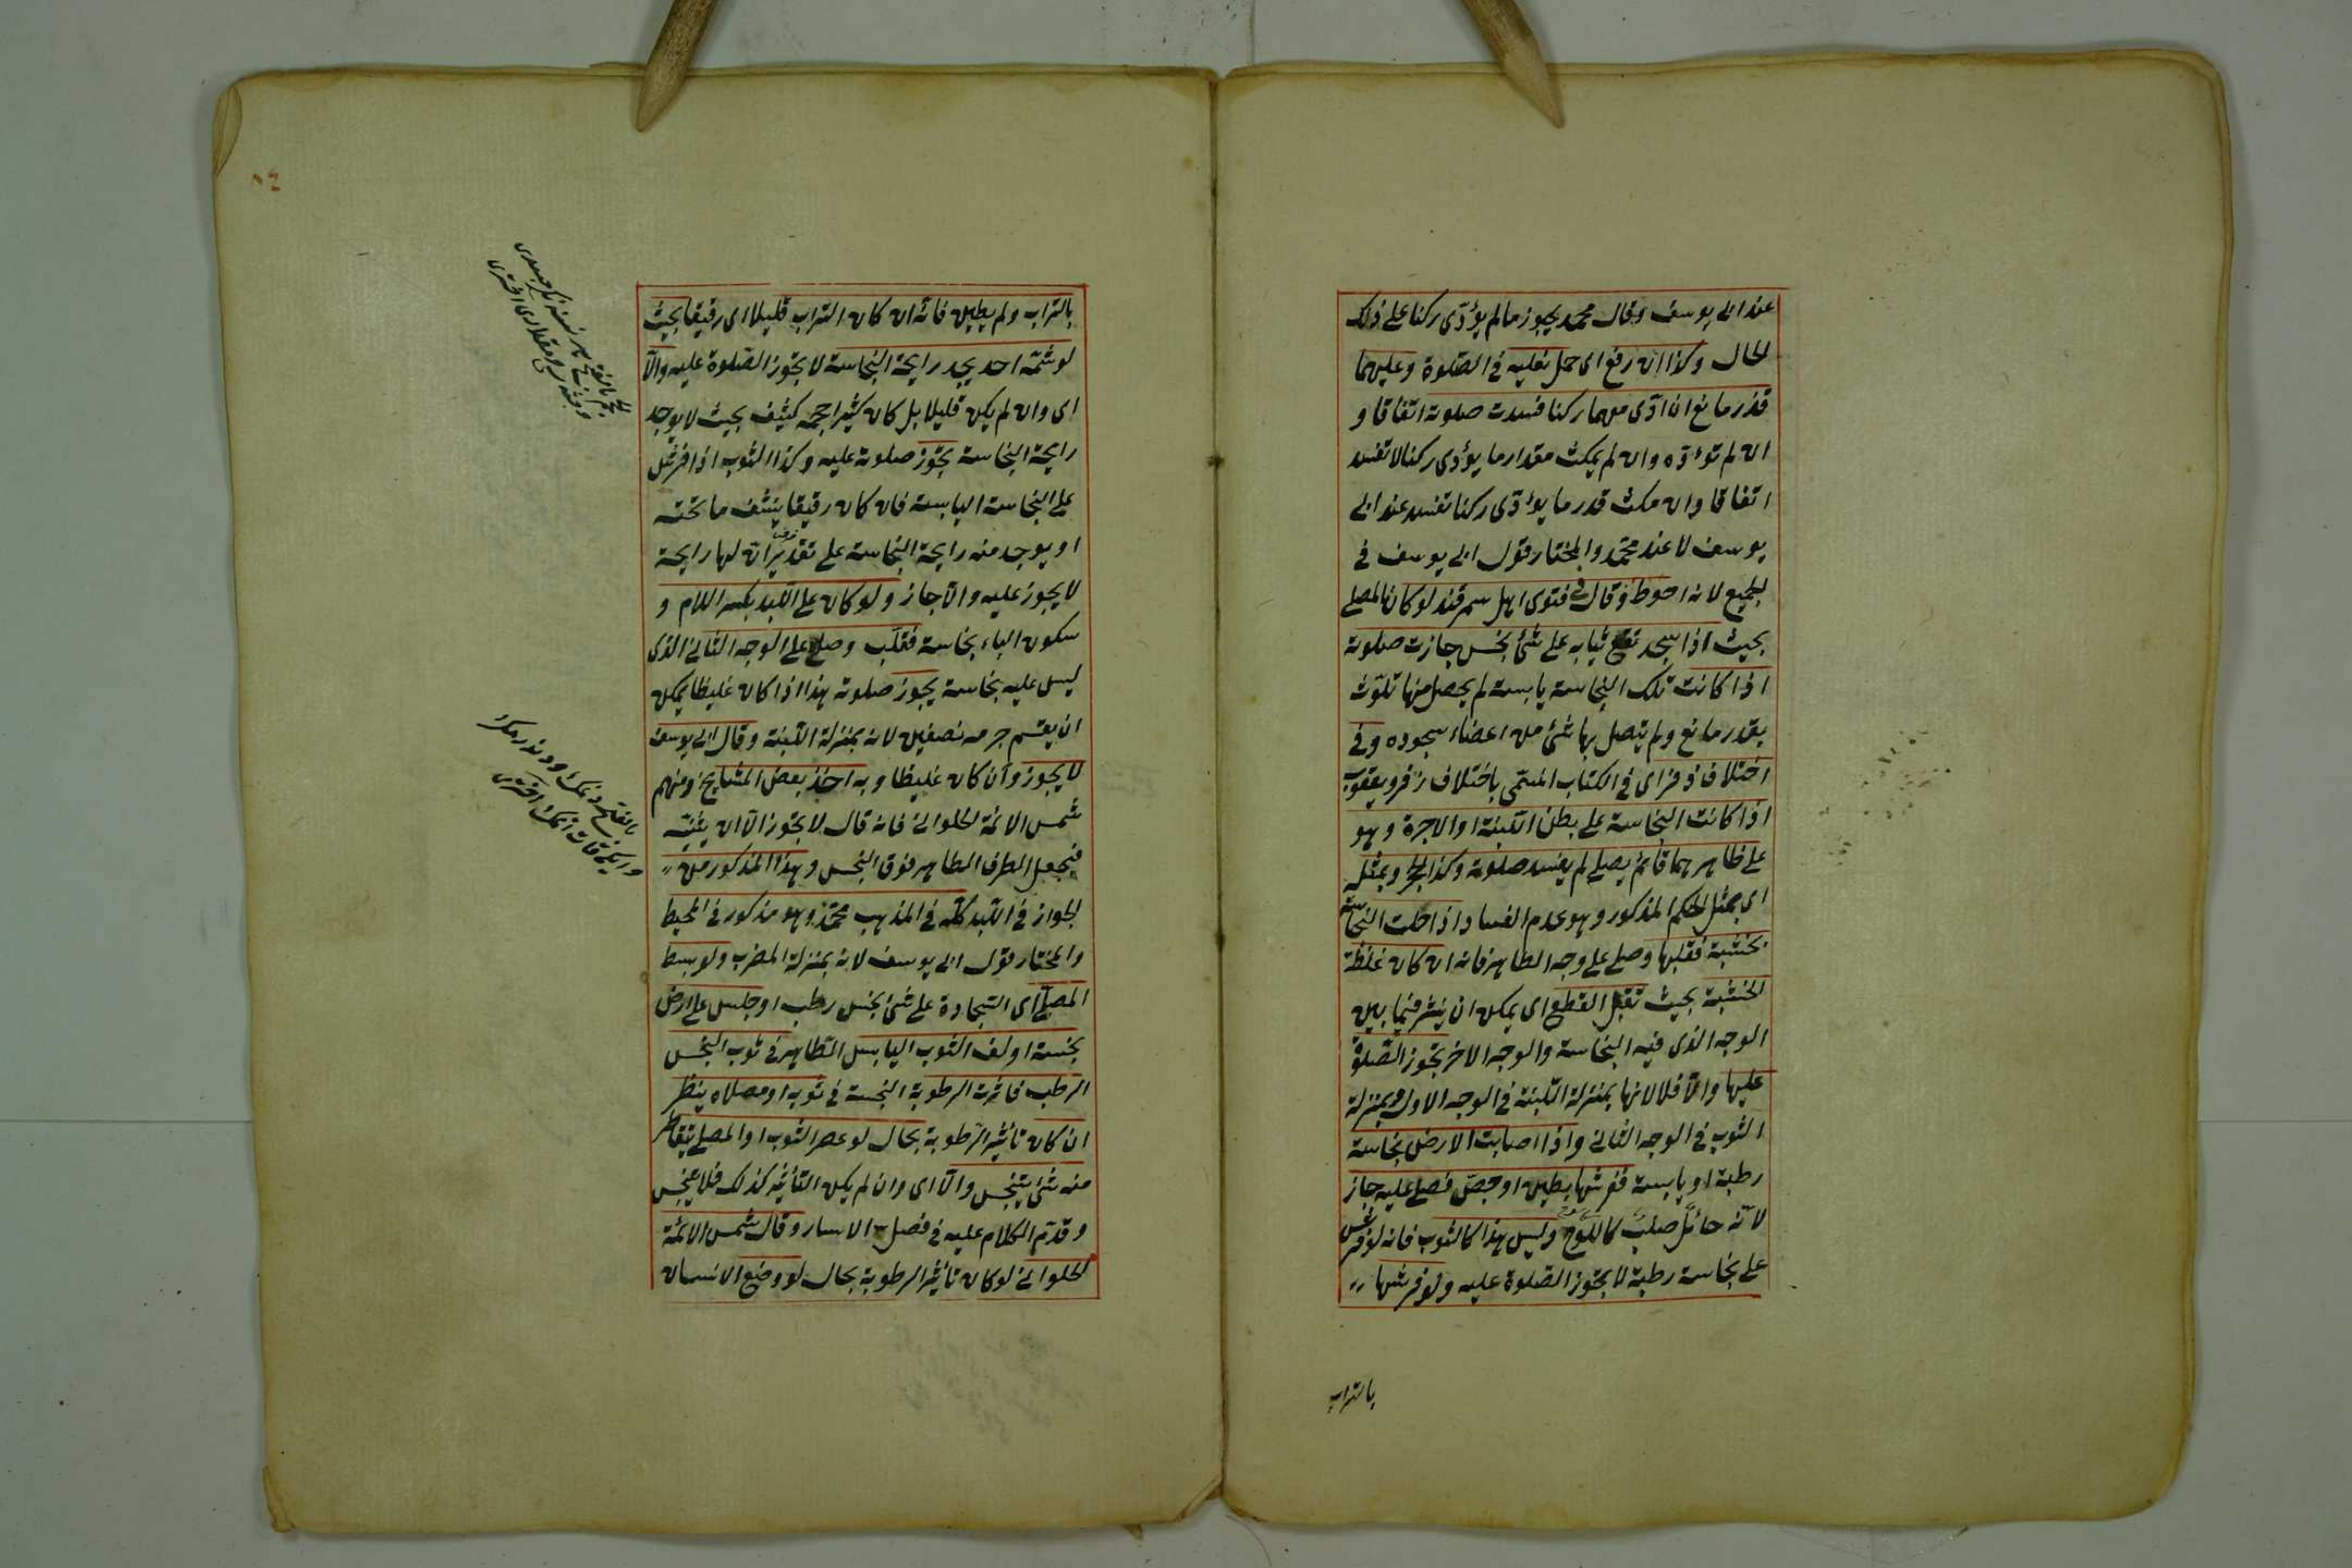 عند ابی یوسف وقال محمد یجوز مالم یؤدّی رکنا علی ذلک
الحال وکذا ان رفع ای حمل نعلیه فی الصّلوة وعلیهما
قذر مانع ان ادّی معهما رکنا فسدت صلوته اتفاقا و
ان لم تؤدّه وان لم یمکث مقدار ما یؤدی رکنا لا تفسد
اتفاقا وان مکث قدر ما یؤدّی رکنا تفسد عند ابی
یوسف لا عند محمّد والمختار قول ابی یوسف فی
الجمیع لانه احوط وقال فی فتوی اهل سمرقند لو کان المصلی
بحیث اذا سجد تقع ثیابه علی شئ نجس جازت صلوته
اذا کانت تلک النجاسة یابسة لم یحصل منها تلوّث
بقدر مانع ولم یتصل بها شئ من اعضاء سجوده وفی
اختلاف زفر ای فی الکتاب المسمّی باختلاف زفر ویعقوب
اذا کانت النجاسة علی بطن اللبنة او الاجرة وهو
علی ظاهرهما قائم یصلی لم یفسد صلوته وکذا الحجر وبمثله
ای بمثل الحکم المذکور وهو عدم الفساد اذا حلت النجاسة
بخشبة فقلبها وصلی علی وجه الطاهر فانه ان کان غلظة
الخشبة بحیث تقبل القطع ای یمکن ان ینشر فیما بین
الوجه الذی فیه النجاسة والوجه الاخر تجوز الصّلوة
علیها والّا فلا لانها بمنزلة اللّبنة فی الوجه الاول وبمنزلة
الثوب فی الوجه الثانی واذا اصابت الارض نجاسة
رطبة او یابسة ففرشها بطین او جصّ فصلی علیه جاز
لانّه حائل صلب کاللوح ولیس هذا کالثوب فانه لو فرش
علی نجاسة رطبة لا تجوز الصّلوة علیه ولو فرشها
بالتراب
بالتراب ولم یطین فانه ان کان التراب قلیلا ای رقیقا بحیث
لو شمّه احد یجد رایحة النجاسة لا تجوز الصّلوة علیه والّا
ای وان لم یکن قلیلا بل کان کثیرا حجمه کثیف بحیث لا یوجد
رایحة النجاسة تجوز صلوته علیه وکذا الثوب اذا فرش
علی النجاسة الیابسة فان کان رقیقا ینشف ما تحته
او یوجد منه رایحة النجاسة علی تقدیر ان لها رایحة
لا یجوز علیه والّا جاز ولو کان علی اللّبد بکسر اللام و
سکون الباء نجاسة فقلّب وصلی علی الوجه الثانی الذی
لیس علیه نجاسة یجوز صلوته هذا اذا کان غلیظا یمکن
ان یقسم جرمه نصفین لانه بمنزلة اللّبنة وقال ابی یوسف
لا یجوز وان کان غلیظا وبه اخذ بعض المشایخ ومنهم
شمس الائمة الحلوانی فانه قال لا تجوز الّا ان یثنیه
فیجعل الطرف الطاهر فوق النجس وهذا المذکور من
الجواز فی اللّبد کلّه فی المذهب محمّد وهو مذکور فی المحیط
والمختار قول ابی یوسف لانه بمنزلة المضرب ولو بسط
المصلّی ای السّجادة علی شئ نجس رطب او جلس علی ارض
نجسة او لف الثوب الیابس الطاهر فی ثوب النجس
الرطب فاثرت الرطوبة النجسة فی ثوبه او مصلاه ینظر
ان کان تاثیر الرّطوبة بحال لو عصر الثوب او المصلی یتقاطر
منه شئ یتنجس والّا ای وان لم یکن التأثیر کذلک فلا یتنجس
وقدّم الکلام علیه فی فصل الاسار وقال شمس الائمة
الحلوانی لو کان تأثیر الرطوبة بحال لو وضع الانسان